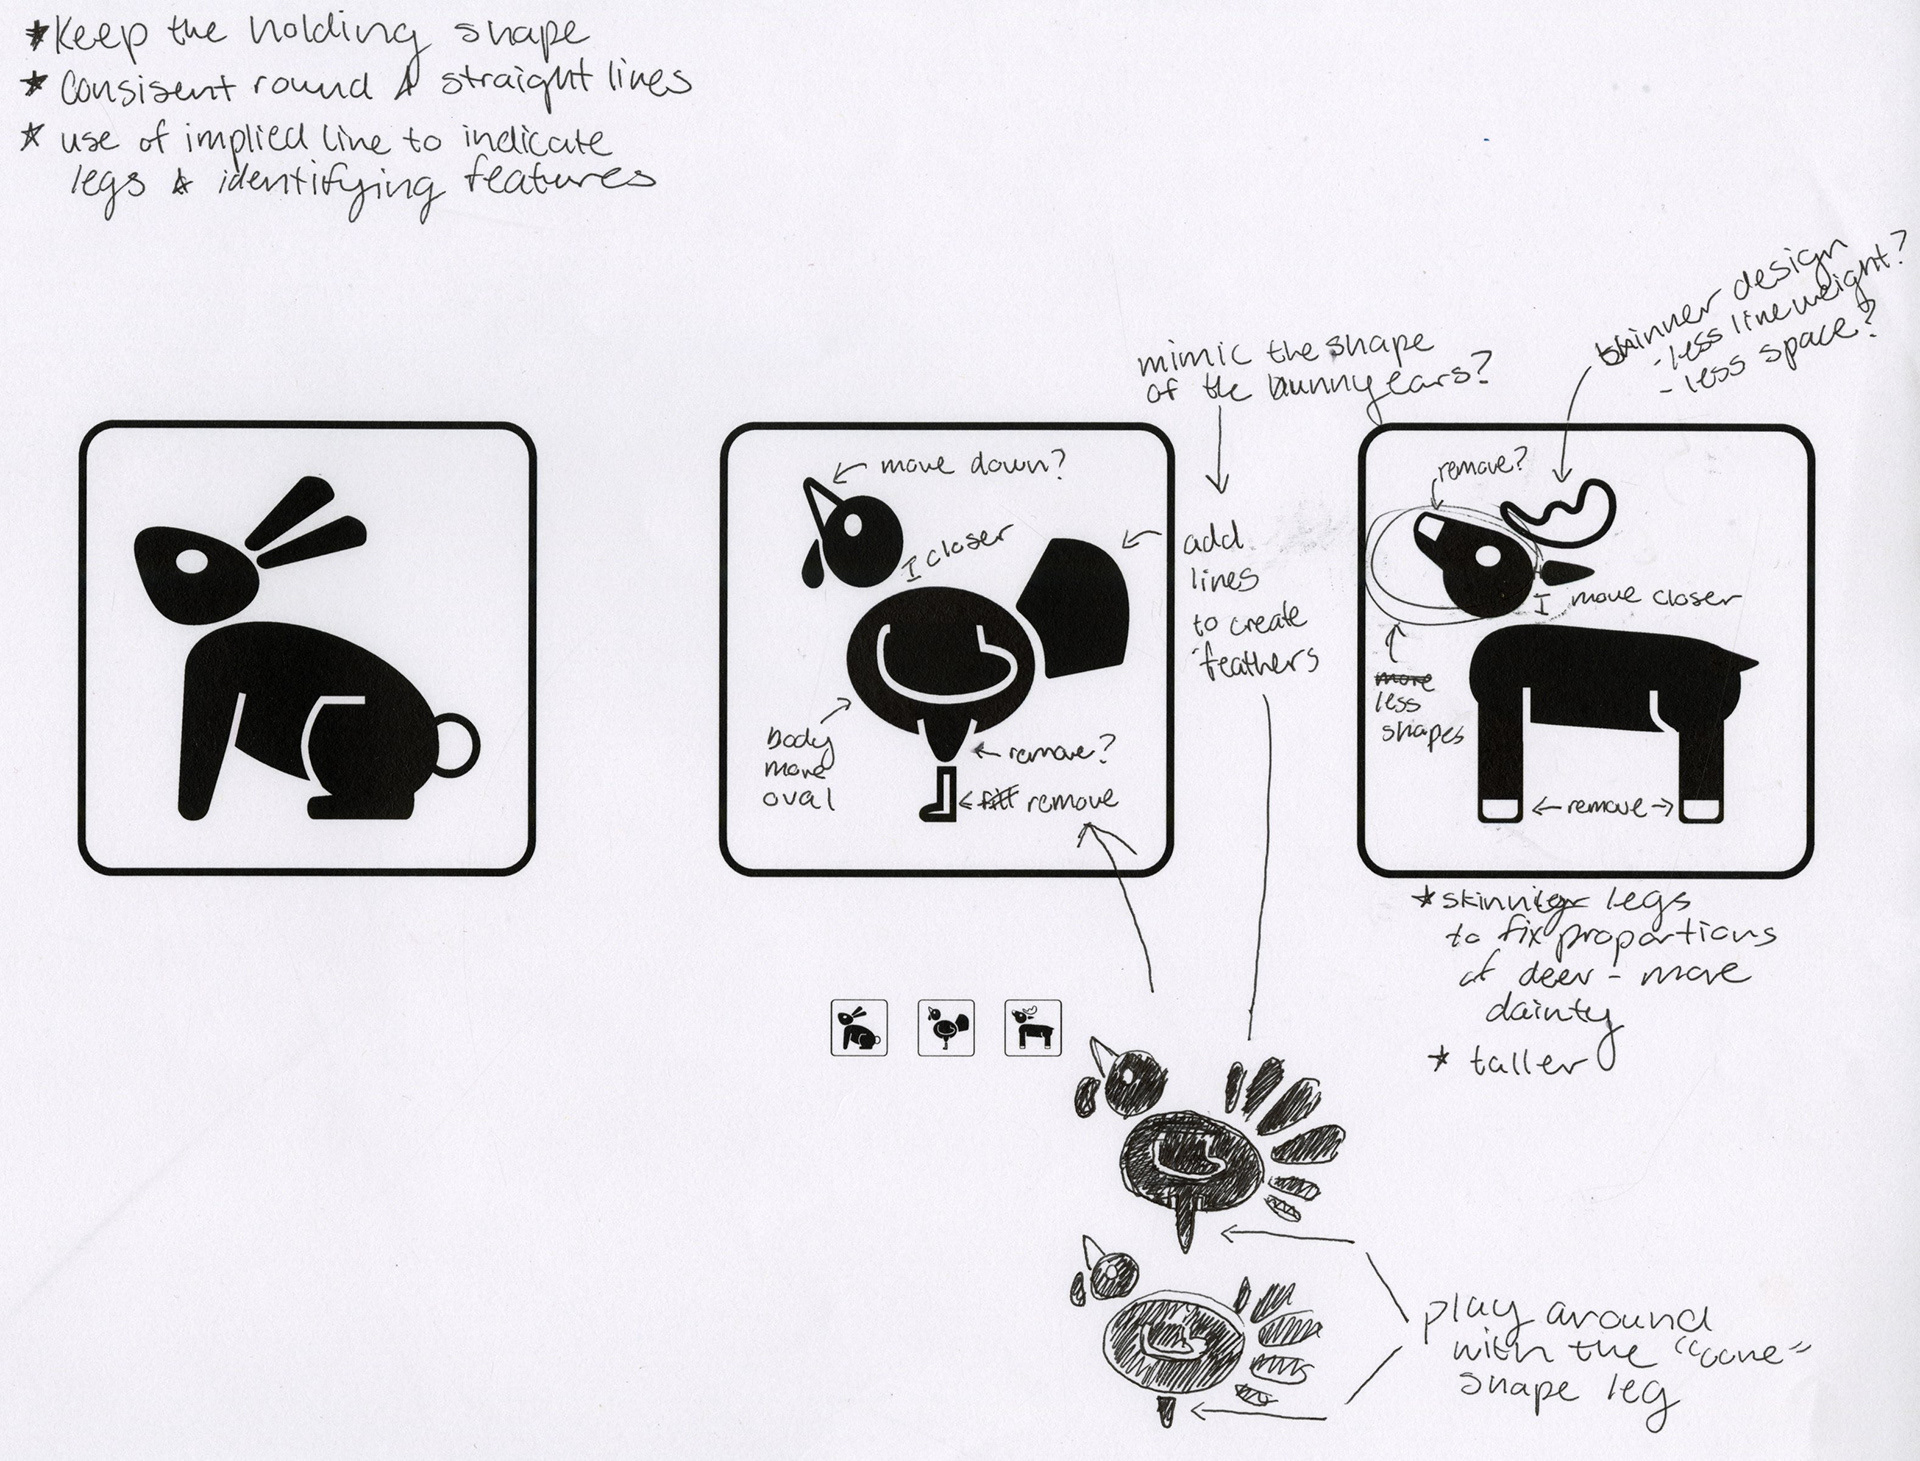 *Keep the holding shape
* Consisent round & straight lines
* use of implied line to indicate
legs & identifying features
skinner design
- less line weight?
- less space?
mimic the shape
of the bunny ears?
move down?
I closer
add
lines
to create
feathers
body
more
oval
remove?
remove
remove?
I move closer
more
less
shapes
remove
* skinnier legs
to fix proportions
of deer - more
dainty
* taller
play around
with the "cone"
shape leg